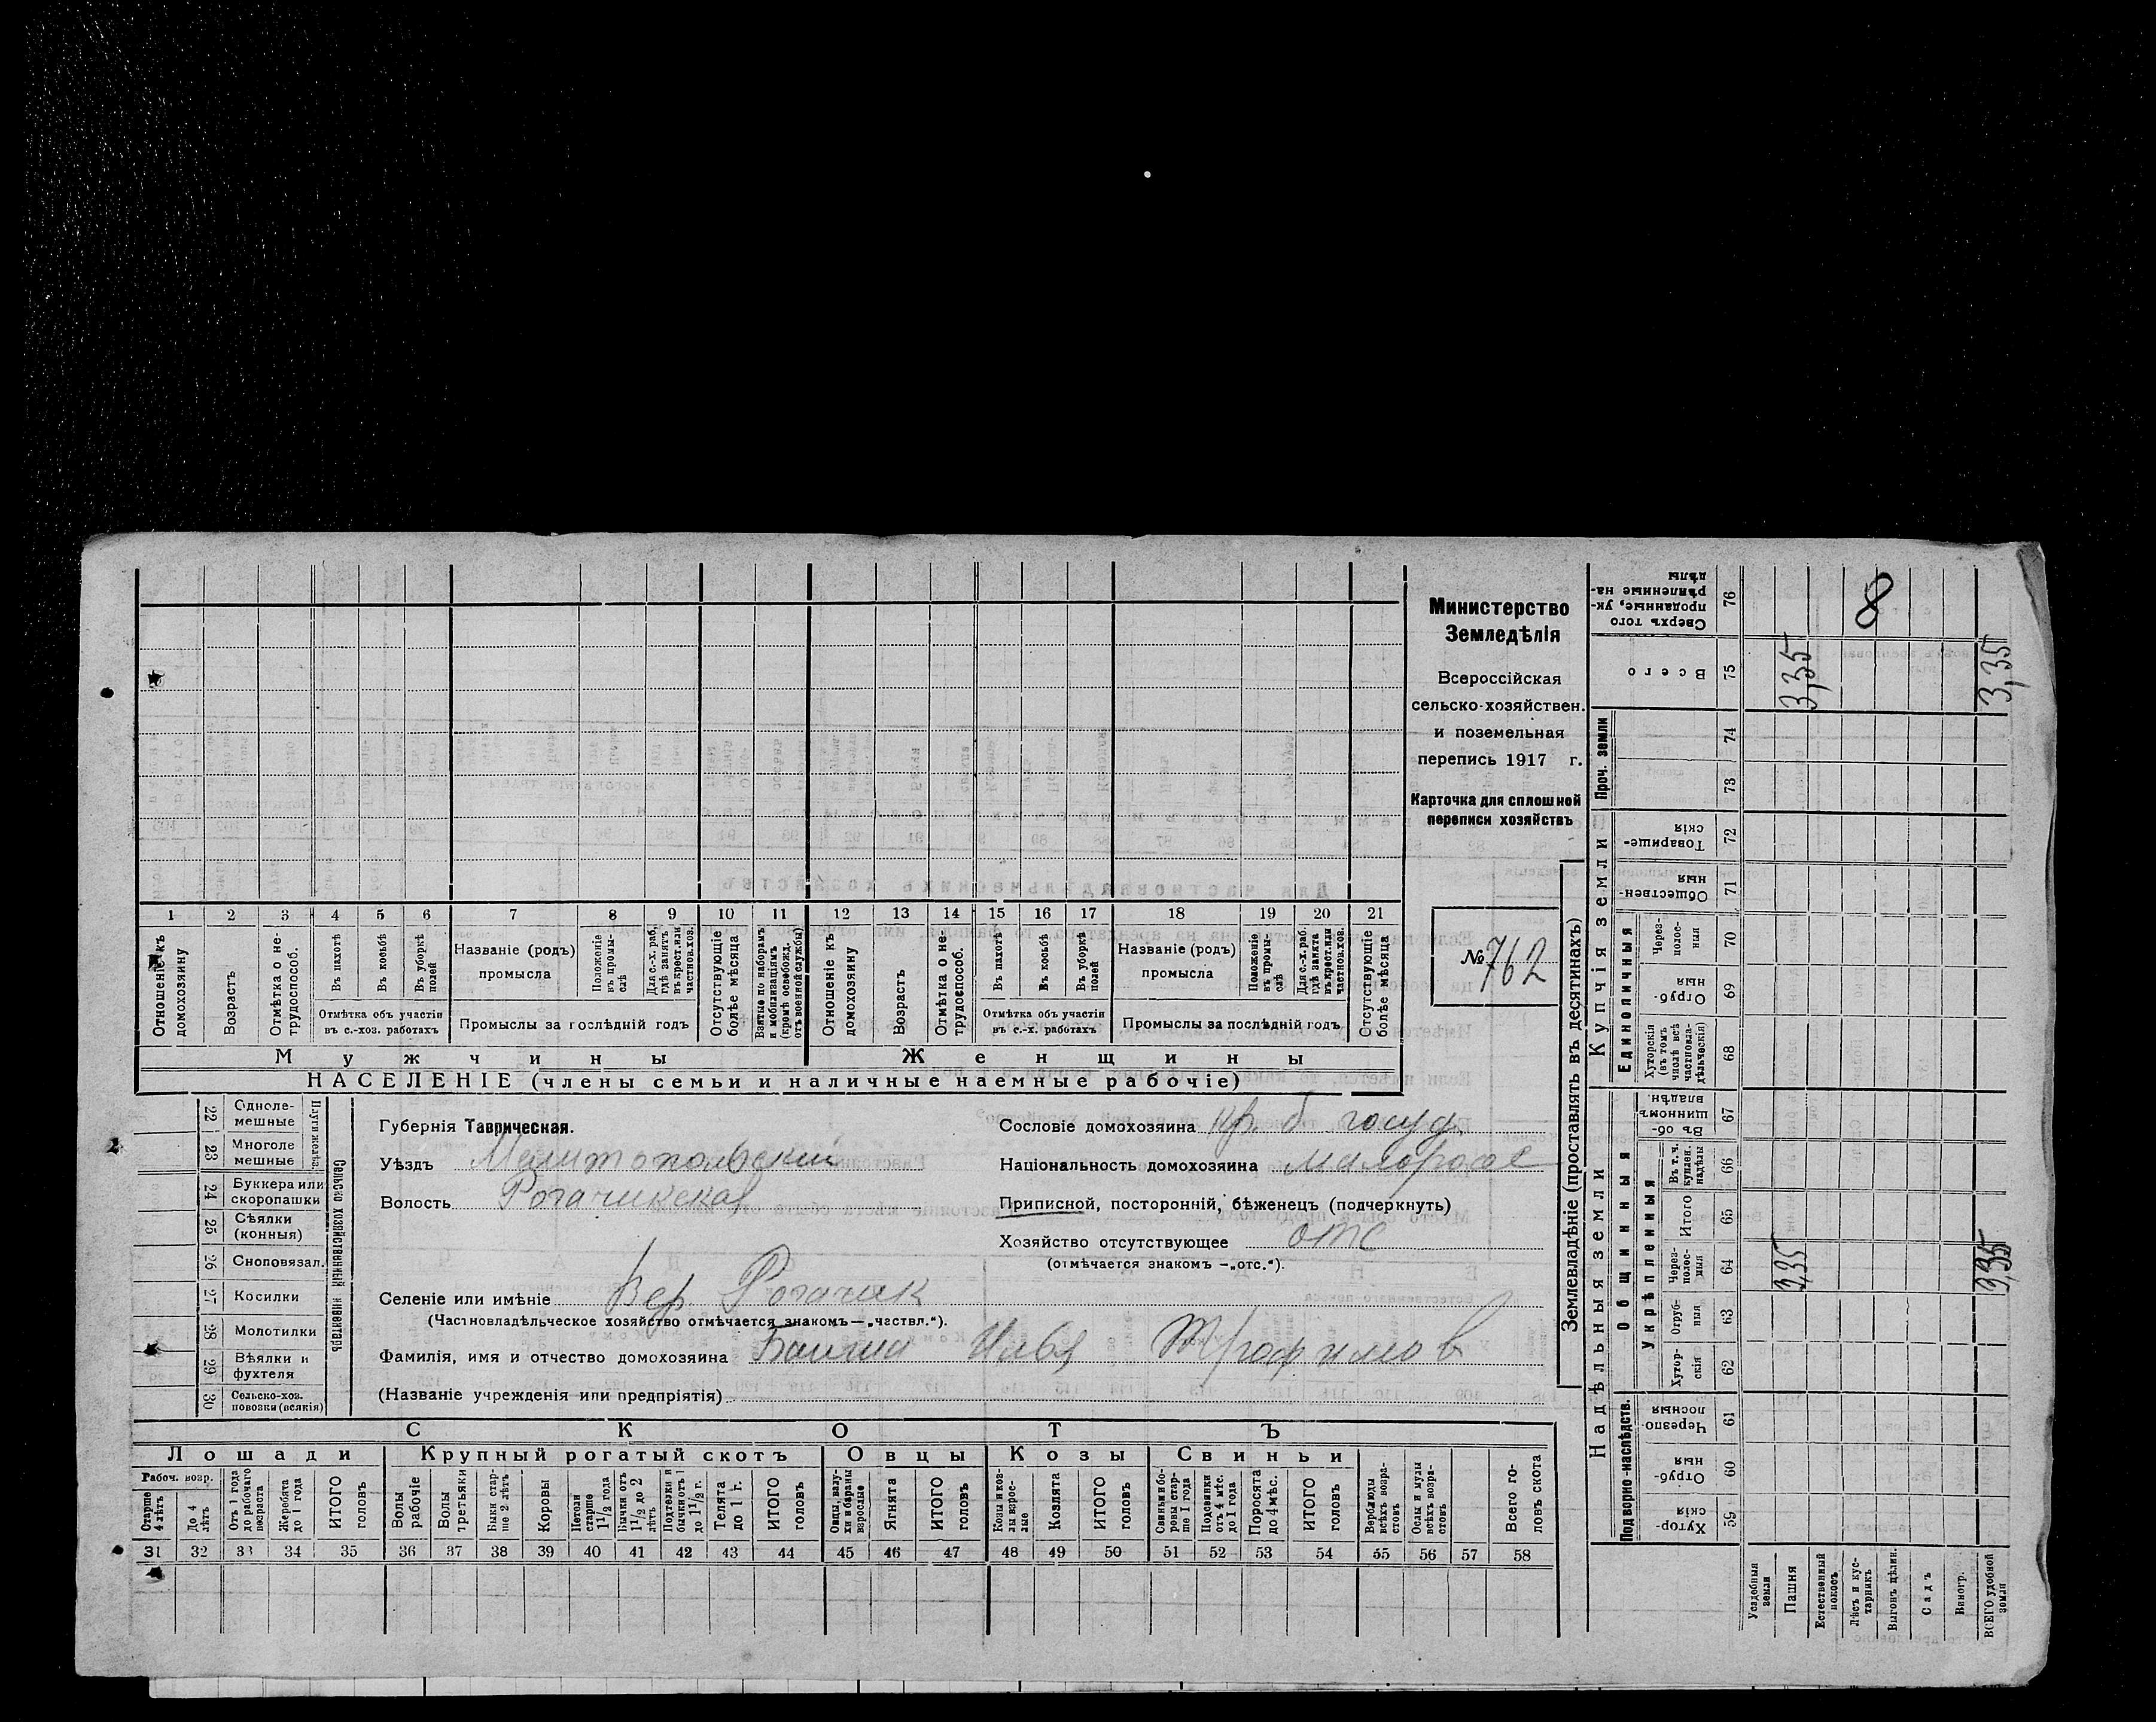 Министерство
Земледѣлія
Всероссійская
сельско-хозяйствен.
и поземельная
перепись 1917 г.
Карточка для сплошной
переписи хозяйствъ
№ 762
1 2 3 4 5 6 7 8 9 10 11 12 13 14 15 16 17 18 19 20 21
Отношеніе къ домохозяину
Возрастъ
Отмѣтка о не-трудоспособ.
Въ пахотѣ
Въ косьбѣ
Въ уборкѣ полей
Отмѣтка объ участіи въ с.-хоз. работахъ
Названіе (родъ) промысла
Положеніе въ промы-слѣ
Для с.-х. раб. гдѣ занятъ въ крест. или частнов. хоз.
Промыслы за послѣдній годъ
Отсутствующіе болѣе мѣсяца
Взятые по наборамъ и мобилизаціямъ (кромѣ освобожд. отъ военной службы)
Отношеніе къ домохозяину
Возрастъ
Отмѣтка о не-трудоспособ.
Въ пахотѣ
Въ косьбѣ
Въ уборкѣ полей
Отмѣтка объ участіи въ с.-х. работахъ
Названіе (родъ) промысла
Положеніе въ промы-слѣ
Для с.-х. раб. гдѣ занята въ крест. или частнов. хоз.
Промыслы за послѣдній годъ
Отсутствующіе болѣе мѣсяца
Мужчины Женщины
НАСЕЛЕНІЕ (члены семьи и наличные наемные рабочіе)
22 Однолемешные
23 Многолемешные
Плуги желѣз.
24 Буккера или скоропашки
25 Сѣялки (конныя)
26 Сноповязал.
27 Косилки
28 Молотилки
29 Вѣялки и фухтеля
30 Сельско-хоз. повозки (всякія)
Сельско хозяйственный инвентарь
Губернія Таврическая.
Уѣздъ Мелитопольскій
Волость Рогачикская
Сословіе домохозяина кр. б. госуд.
Національность домохозяина малоросс
Приписной, посторонній, бѣженецъ (подчеркнуть)
Хозяйство отсутствующее отс
(отмѣчается знакомъ —„отс.“).
Селеніе или имѣніе Вер. Рогачик
(Частновладѣльческое хозяйство отмѣчается знакомъ—„частвл.“).
Фамилія, имя и отчество домохозяина Илья Трофимов
(Названіе учрежденія или предпріятія)
СКОТЪ
Лошади Крупный рогатый скотъ Овцы Козы Свиньи
Рабоч. возр.
Старше 4 лѣтъ
До 4 лѣтъ
Отъ 1 года до рабочаго возраста
Жеребята до 1 года
ИТОГО головъ
Волы рабочіе
Волы третьяки
Быки стар-ше 2 лѣтъ
Коровы
Нетели старше 1 1/2 года
Бычки отъ 1 1/2 до 2 лѣтъ
Подтелки и бычки отъ 1 до 1 1/2 г.
Телята до 1 г.
ИТОГО головъ
Овцы, валу-хи и бараны взрослые
Ягнята
ИТОГО головъ
Козы и коз-лы взрос-лые
Козлята
ИТОГО головъ
Свиньи и бо-ровы стар-ше 1 года
Подсвинки отъ 4 мѣс. до 1 года
Поросята до 4 мѣс.
ИТОГО головъ
Верблюды всѣхъ возра-стовъ
Ослы и мулы всѣхъ возра-стовъ
Всего го-ловъ скота
31 32 33 34 35 36 37 38 39 40 41 42 43 44 45 46 47 48 49 50 51 52 53 54 55 56 57 58
Землевладѣніе (проставлять въ десятинахъ)
Надѣльныя земли
Купчія земли
Проч. земли
Подворно-наслѣдств.
Общинныя
Укрѣпленныя
Единоличныя
Хутор-скія 59
Отруб-ныя 60
Черезпо-лосныя 61
Хутор-скія 62
Отруб-ныя 63
Через-полос-ныя 64
Итого 65
Въ т. ч. куплен. надѣлы 66
Въ об-щинномъ владѣн. 67
Хуторскія (въ томъ числѣ всѣ частновла-дѣльческія) 68
Отруб-ныя 69
Через-полос-ныя 70
Обществен-ныя 71
Товарище-скія 72
73
74
Всего 75
Сверхъ того проданные, ук-рѣпленные на-дѣлы 76
8
3,35 3,35
3,35 3,35
Усадебныя земли
Пашня
Естественный покосъ
Лѣсъ и кус-тарникъ
Выгонъ цѣлин.
Садъ
Виногр.
ВСЕГО удобной земли